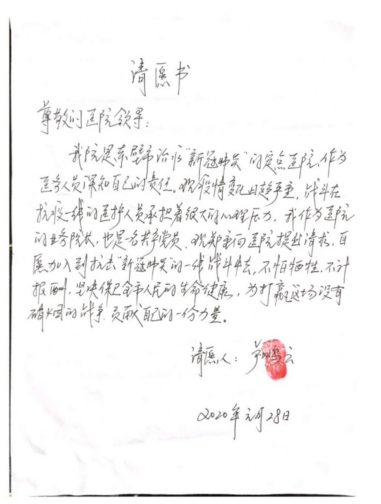 请愿书
尊敬的医院领导:
我院是赤壁市治疗“新冠肺炎”的定点医院,作为
医务人员深知自己的责任,现疫情变化日趋严重,战斗在
抗疫一线的医护人员承担着极大的心理压力。我作为医院
的业务院长,也是名共产党员,现郑重向医院提出请求,自
愿加入到抗击“新冠肺炎”的一线战斗中去,不怕牺牲,不计
报酬,坚决保卫全市人民的生命健康,为打赢这场没有
硝烟的战争,贡献自己的一份力量。
请愿人:
2020年元月28日